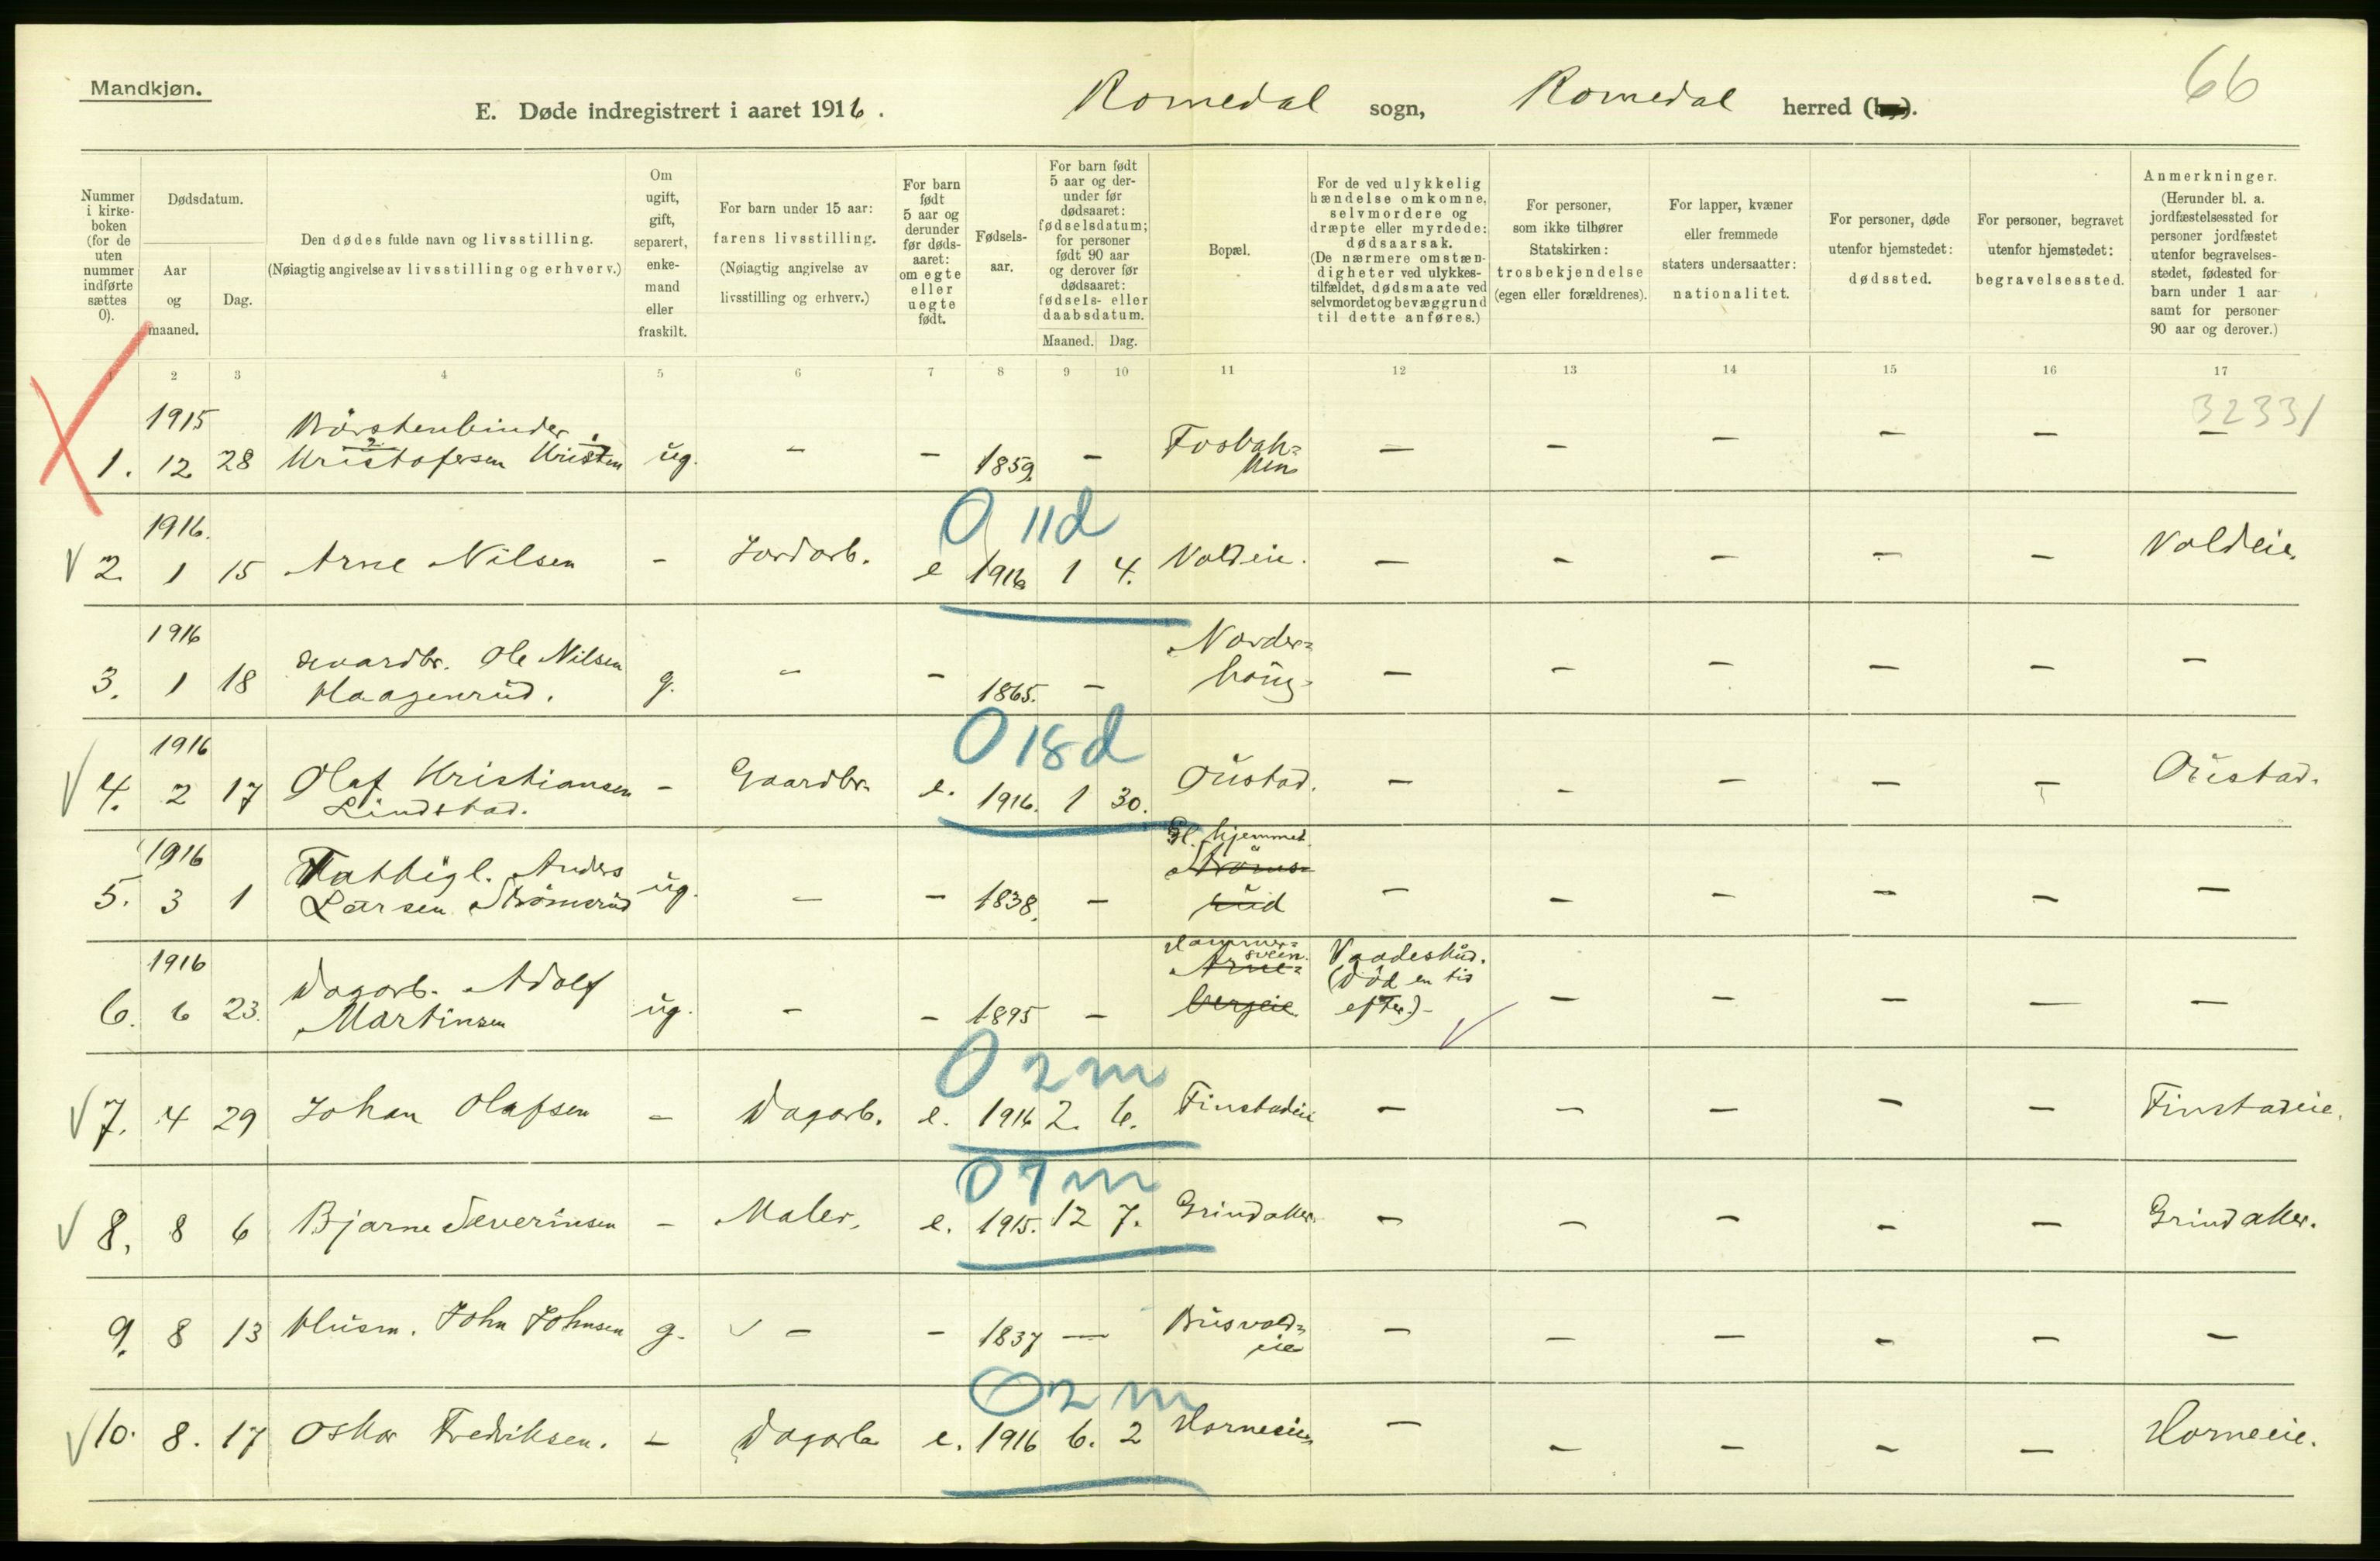 Mandkjøn.
66
E. Døde indregistrert i aaret 1916. Romedal sogn, Romedal herred
Nummer i kirkeboken (for de uten nummer indførte sættes 0).
Dødsdatum.
Aar og maaned.
Dag.
Den dødes fulde navn og livsstilling.
(Nøiagtig angivelse av livsstilling og erhverv.)
Om ugift, gift, separert, enkemand eller fraskilt.
For barn under 15 aar: farens livsstilling.
(Nøiagtig angivelse av livsstilling og erhverv.)
For barn født 5 aar og derunder før dødsaaret: om egte eller uegte født.
Fødselsaar.
For barn født 5 aar og derunder før dødsaaret: fødselsdatum; for personer født 90 aar og derover før dødsaaret: fødsels- eller daabsdatum.
Maaned. Dag.
Bopæl.
For de ved ulykkelig hændelse omkomne, selvmordere og dræpte eller myrdede: dødsaarsak.
(De nærmere omstændigheter ved ulykkestilfældet, dødsmaate ved selvmordet og bevæggrund til dette anføres.)
For personer, som ikke tilhører Statskirken: trosbekjendelse (egen eller forældrenes).
For lapper, kvæner eller fremmede staters undersaatter: nationalitet.
For personer, døde utenfor hjemstedet: dødssted.
For personer, begravet utenfor hjemstedet: begravelsessted.
Anmerkninger.
(Herunder bl. a. jordfæstelsessted for personer jordfæstet utenfor begravelsesstedet, fødested for barn under 1 aar samt for personer 90 aar og derover.)
1 2 3 4 5 6 7 8 9 10 11 12 13 14 15 16 17
3233/
1915 Börstenbinder
1. 12 28 Kristofersen Kristen ug. - - 1859. - Fosbakken - - - - - -
0 11d
1916.
2. 1 15 Arne Nilsen - Jordarb. e 1916 1 4. Voldeie. - - - - - Voldeie.
1916
3. 1 18 Gaardbr. Ole Nilsen Haagenrud. g. - - 1865. - Norderhoug - - - - - -
0 18d
1916
4. 2 17 Olaf Kristiansen Lindstad. - Gaardbr. e. 1916. 1 30. Oustad. - - - - - Oustad.
1916
5. 3 1 Fattigl. Anders Larsen Strömsrud ug. - - 1838. - Gl. hjemmet Strömsrud - - - - - -
1916
6. 6 23. Dagarb. Adolf Martinsen ug. - - 1895 - Hammersveen. Arnebergeie. Vaadeskud. (död en tid efter.) - - - - -
0 2m
7. 4 29 Johan Olafsen - Dagarb. e. 1916 2. 6. Finstadeie - - - - - Finstadeie.
0 7m
8. 8 6 Bjarne Severinsen - Maler. e. 1915. 12 7. Grindaker. - - - - - Grindaker.
9. 8 13 Husm. John Johnsen g. - - 1837 - Busvoldeie - - - - - -
0 2m
10. 8. 17 Oskar Fredriksen. - Dagarb. e. 1916 6. 2 Horneeie - - - - - Horneeie.